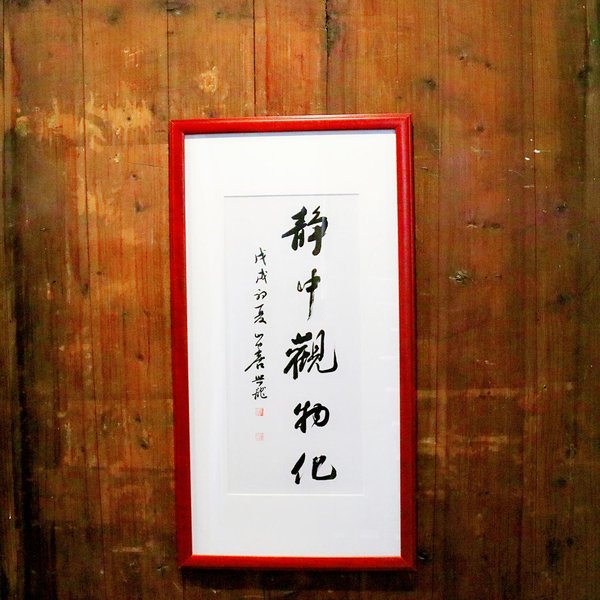 静中觀物化
戊戌初夏